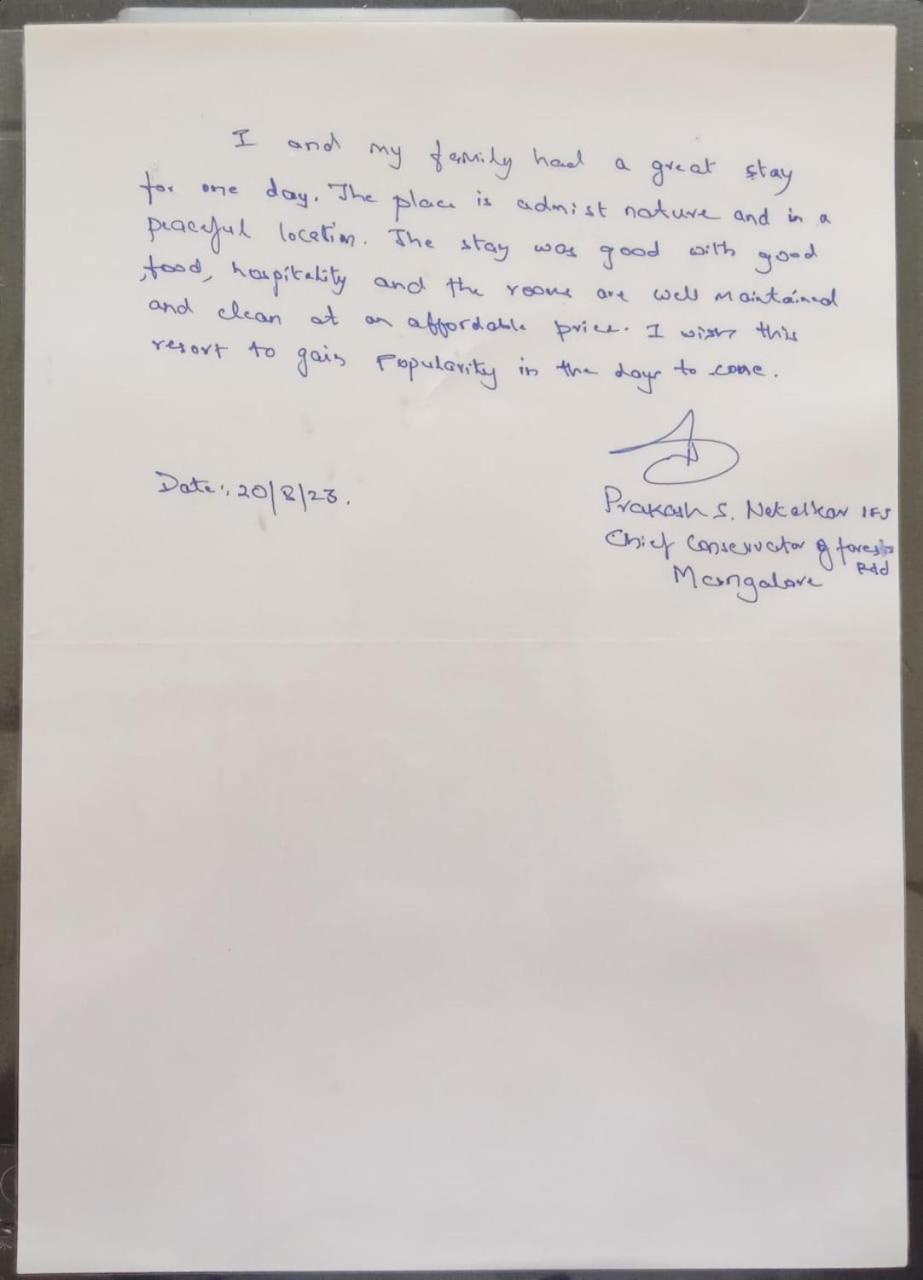 I and my family had a great stay
for one day. The place is admist nature and in a
peaceful location. The stay was good with good
food, hospitality and the rooms are well maintained
and clean at an affordable price. I wish this
resort to gain Popularity in the days to come.
Date:, 20/8/23.
Prakash S. Netalkar IFS
Chief Conservator of forests
Rtd
Mangalore